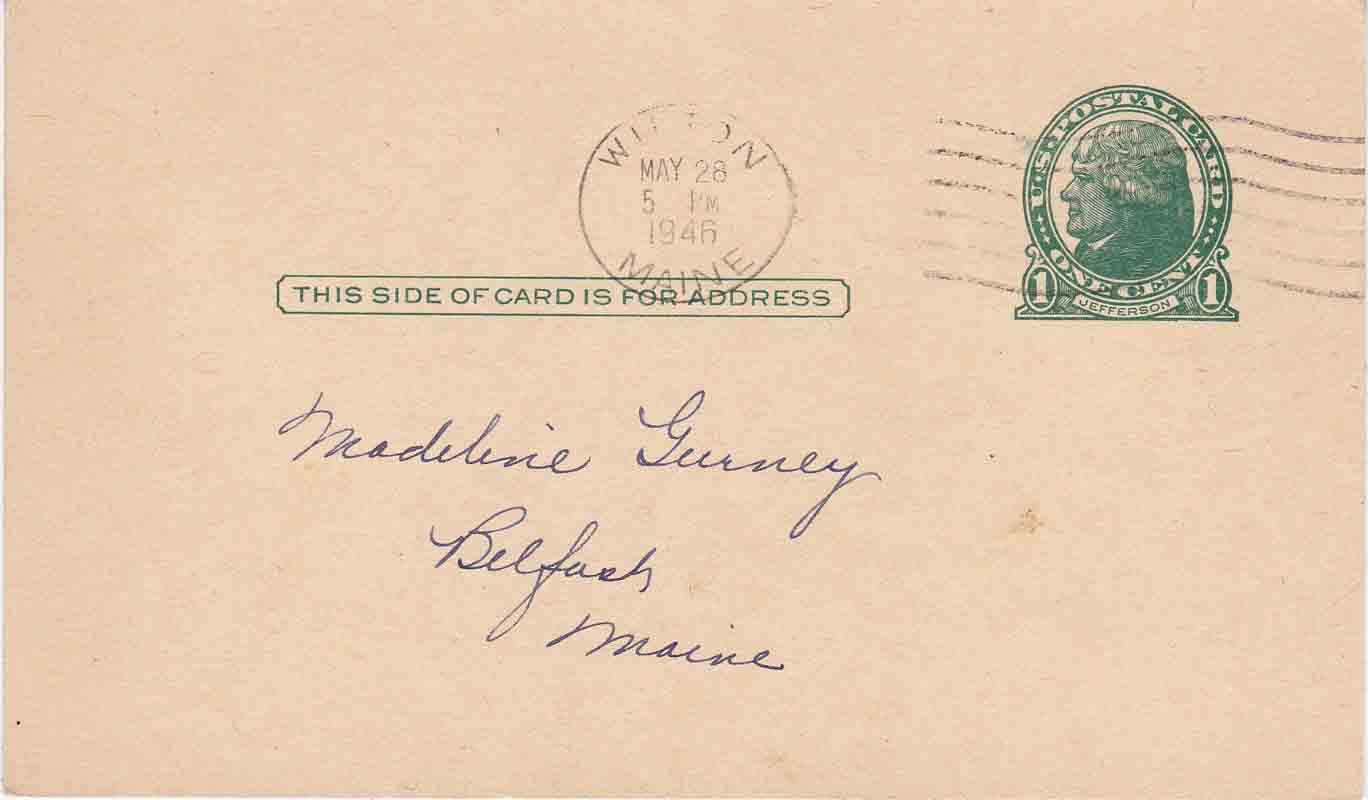 WILTON
MAY 28
5 PM
1946
MAINE
U.S. POSTAL CARD
ONE CENT
1 JEFFERSON 1
THIS SIDE OF CARD IS FOR ADDRESS
Madeline Gurney
Belfast
Maine